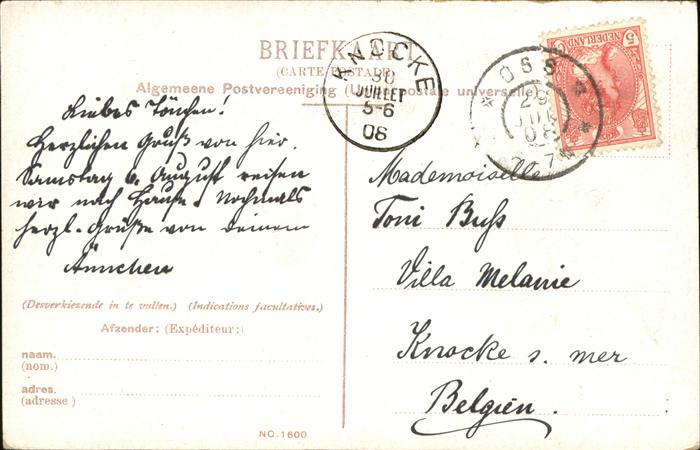 BRIEFKAART
(CARTE POSTALE)
Algemeene Postvereeniging (Union postale universelle)
KNOCKE
30
JUILLET
5-6
08
OSS
29
JUL
08
NEDERLAND
5
Liebes Tönchen!
Herzlichen Gruß von hier.
Samstag 6. August reisen
wir nach Hause. Nochmals
herzl. Grüße von deinem
Ännchen
Mademoiselle
Toni Buss
Villa Melanie
Knocke s. mer
Belgien.
(Desverkiezende in te vullen.) (Indications facultatives.)
Afzender: (Expéditeur:)
naam.
(nom.)
adres.
(adresse)
NO. 1600